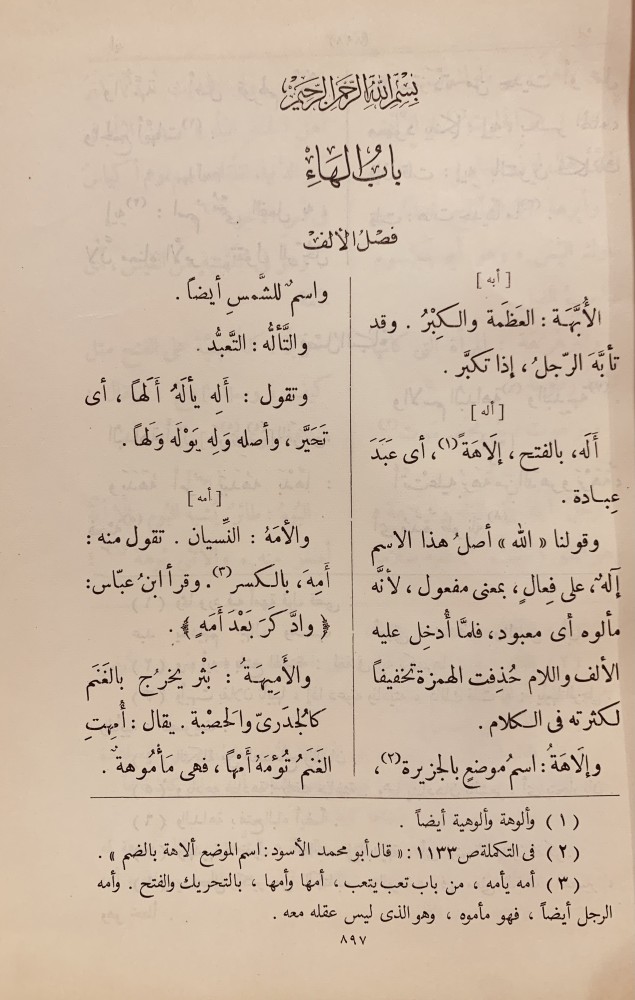 بِسْمِ اللهِ الرَّحْمَنِ الرَّحِيْمِ
بَابُ الهَاءِ
فصْلُ الألف
[ أبه ]
الأُبَّهَة : العَظَمة والكِبْرُ . وقد
تأبَّهَ الرّجلُ ، إذا تكبَّر .
[ أله ]
أَلَه، بالفتح ، إِلَاهَةً (١) ، أى عَبَدَ
عِبادة .
وقولنا « الله » أصلُ هذا الاسم
إلَهٌ، على فِعالٍ، بمعنى مفعول ، لأنَّه
مألوه أى معبود، فلمَّا أُدخِل عليه
الألف واللام حُذِفت الهمزة تخفيفاً
لكثرته فى الكلام .
وإلَاهَةُ : اسمُ موضعٍ بالجزيرة (٢) ،
واسمٌ للشَّمسِ أيضاً .
والتَّألُّه : التَّعبُّد .
وتقول : أَلِه يألَهُ أَلَهاً ، أى
تَحَيَّر ، وأصله وَلِه يَوْلَه وَلَهاً .
[ أمه ]
والأمَهُ : النِّسيان . تقول منه :
أَمِهَ، بالكسر (٣) . وقرأ ابنُ عبّاس :
﴿ وادَّ كَرَ بَعْدَ أَمَهٍ ﴾ .
والأَمِيهَةُ : بَثْر يخرُج بالغَنَم
كالجُدَرىّ والحَصْبة . يقال : أُمِهتِ
الغَنَمُ تُؤمَهُ أَمْهاً ، فهى مَأْمُوهةٌ .
( ١ ) وألوهة وألوهية أيضاً .
( ٢ ) فى التكملة ص ١١٣٣ : « قال أبو محمد الأسود : اسم الموضع ألاهة بالضم » .
( ٣ ) أمه يأمه ، من باب تعب يتعب ، أمها وأمها ، بالتحريك والفتح . وأمه
الرجل أيضاً ، فهو مأموه ، وهو الذى ليس عقله معه .
٨٩٧